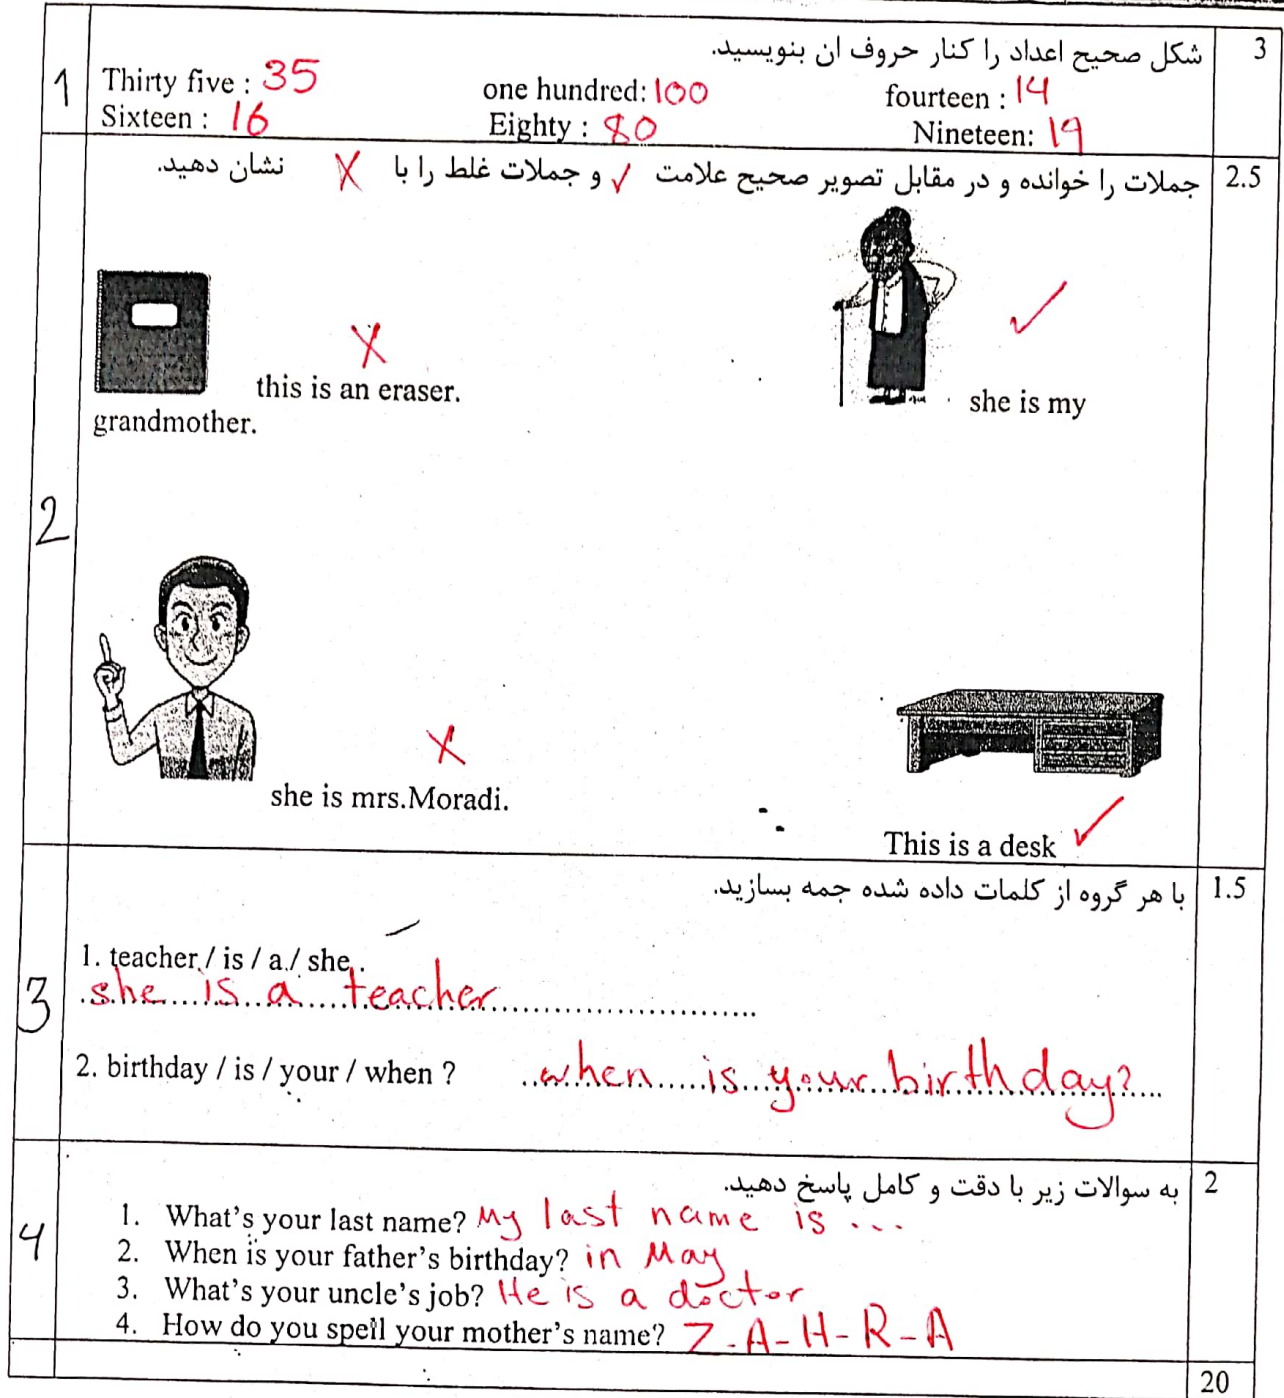 3 شکل صحیح اعداد را کنار حروف ان بنویسید.
1
Thirty five : 35 one hundred: 100 fourteen : 14
Sixteen : 16 Eighty : 80 Nineteen: 19
2.5 جملات را خوانده و در مقابل تصویر صحیح علامت ✓ و جملات غلط را با X نشان دهید.
2
X ✓
this is an eraser. she is my
grandmother.
X
she is mrs.Moradi.
This is a desk ✓
1.5 با هر گروه از کلمات داده شده جمه بسازید.
3
1. teacher / is / a / she .
she is a teacher
2. birthday / is / your / when ? when is your birthday?
2 به سوالات زیر با دقت و کامل پاسخ دهید.
4
1. What's your last name? My last name is ...
2. When is your father's birthday? in May
3. What's your uncle's job? He is a doctor
4. How do you spell your mother's name? Z-A-H-R-A
20